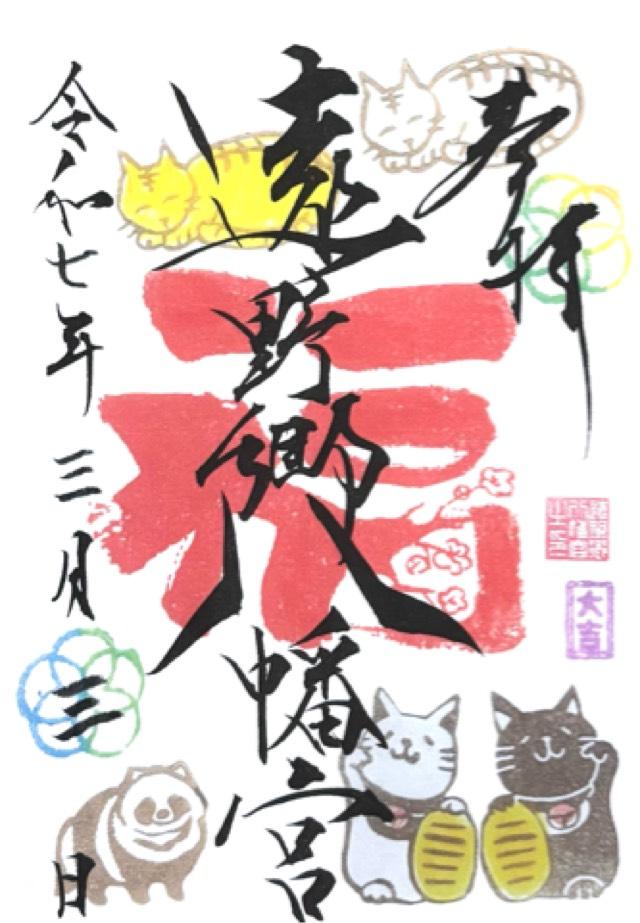 奉拝
遠野郷八幡宮
令和七年三月三日
大吉